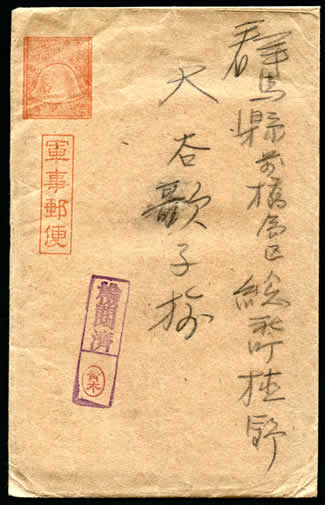 群馬縣前橋局区総社町植野
大谷歌子様
軍事郵便
檢閲濟